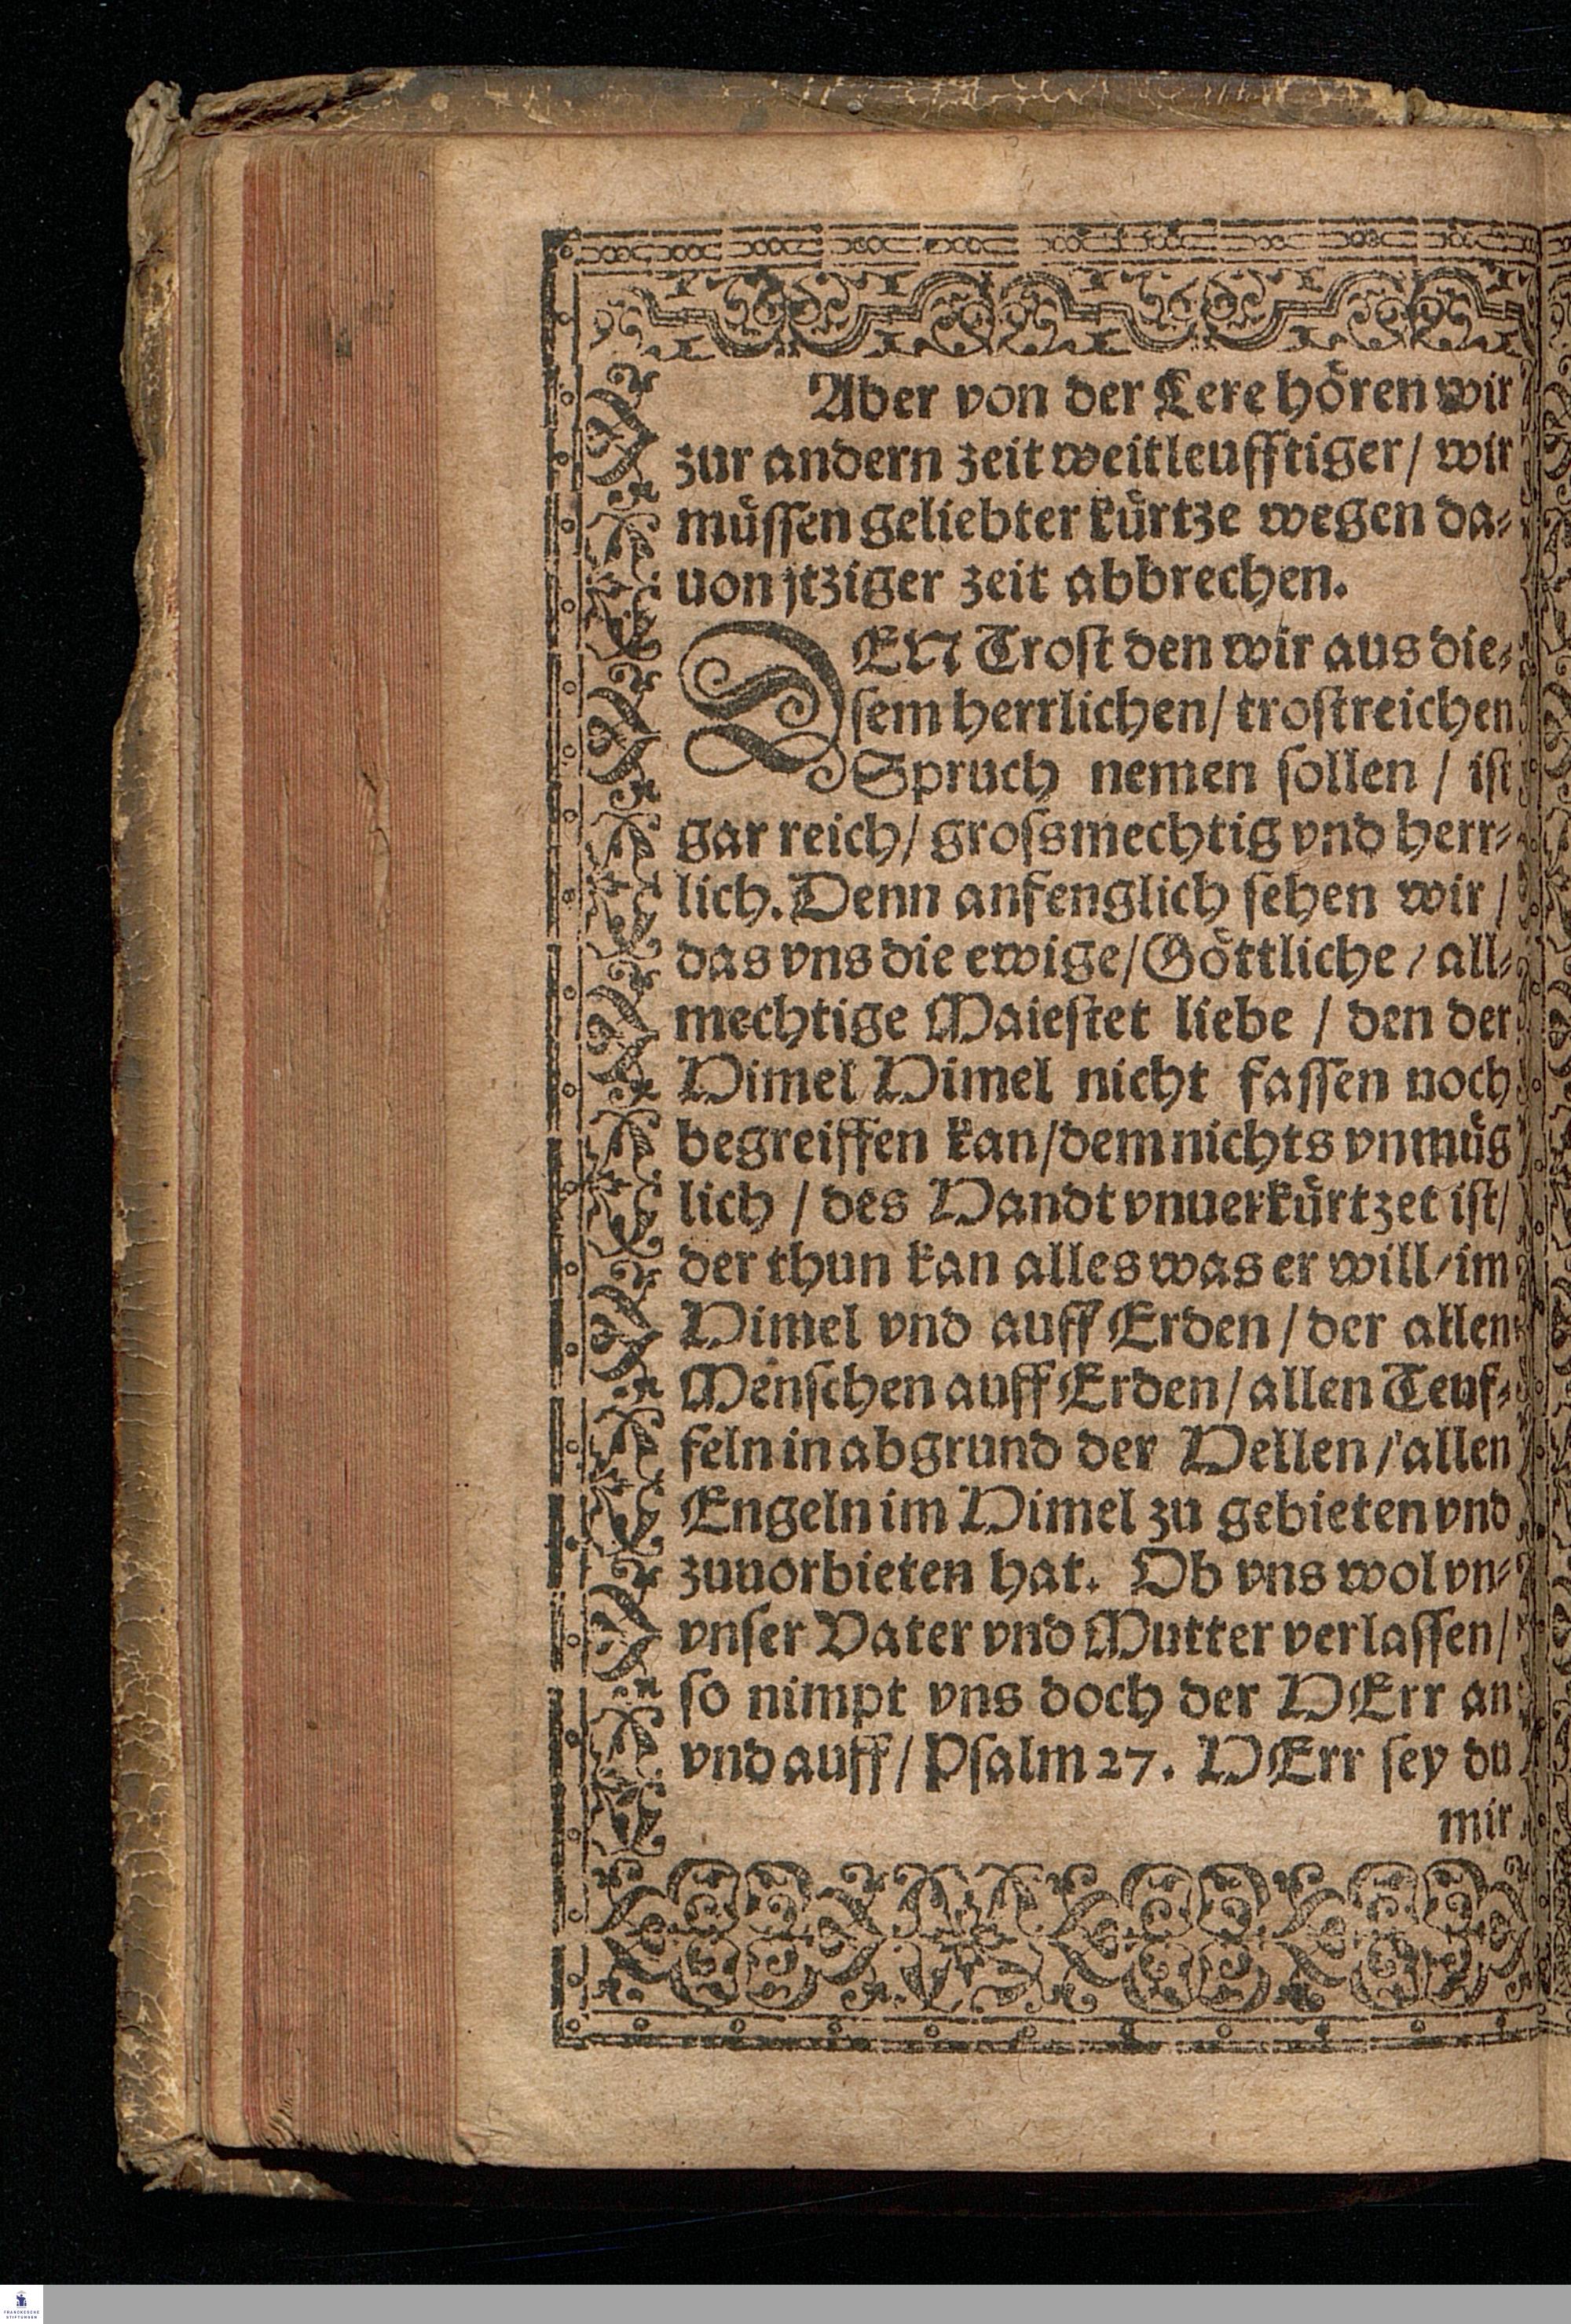 Aber von der Lere hören wir
zur andern zeit weitleufftiger/ wir
müssen geliebter kürtze wegen da⸗
uon jtziger zeit abbrechen.
DEN Trost den wir aus die⸗
sem herrlichen/ trostreichen
Spruch nemen sollen / ist
gar reich/ grossmechtig vnd herr⸗
lich. Denn anfenglich sehen wir /
das vns die ewige/ Göttliche / all⸗
mechtige Maiestet liebe / den der
Himel Himel nicht fassen noch
begreiffen kan/ dem nichts vnmüg
lich / des Handt vnuerkürtzet ist/
der thun kan alles was er will/ im
Himel vnd auff Erden / der allen
Menschen auff Erden/ allen Teuf⸗
feln in abgrund der Hellen / allen
Engeln im Himel zu gebieten vnd
zuuorbieten hat. Ob vns wol vn⸗
vnser Vater vnd Mutter verlassen/
so nimpt vns doch der HErr an
vnd auff/ Psalm 27. HErr sey du
mir
FRANCKESCHE
STIFTUNGEN